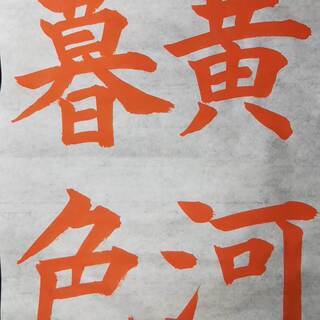 黄河
暮色